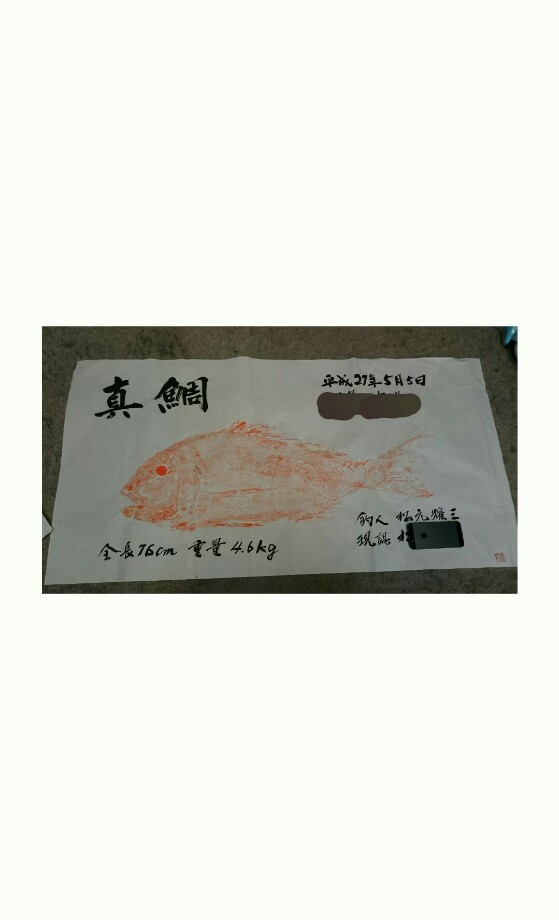 真鯛
平成27年5月5日
全長76cm 重量4.6kg
釣人 松元耀三
現認